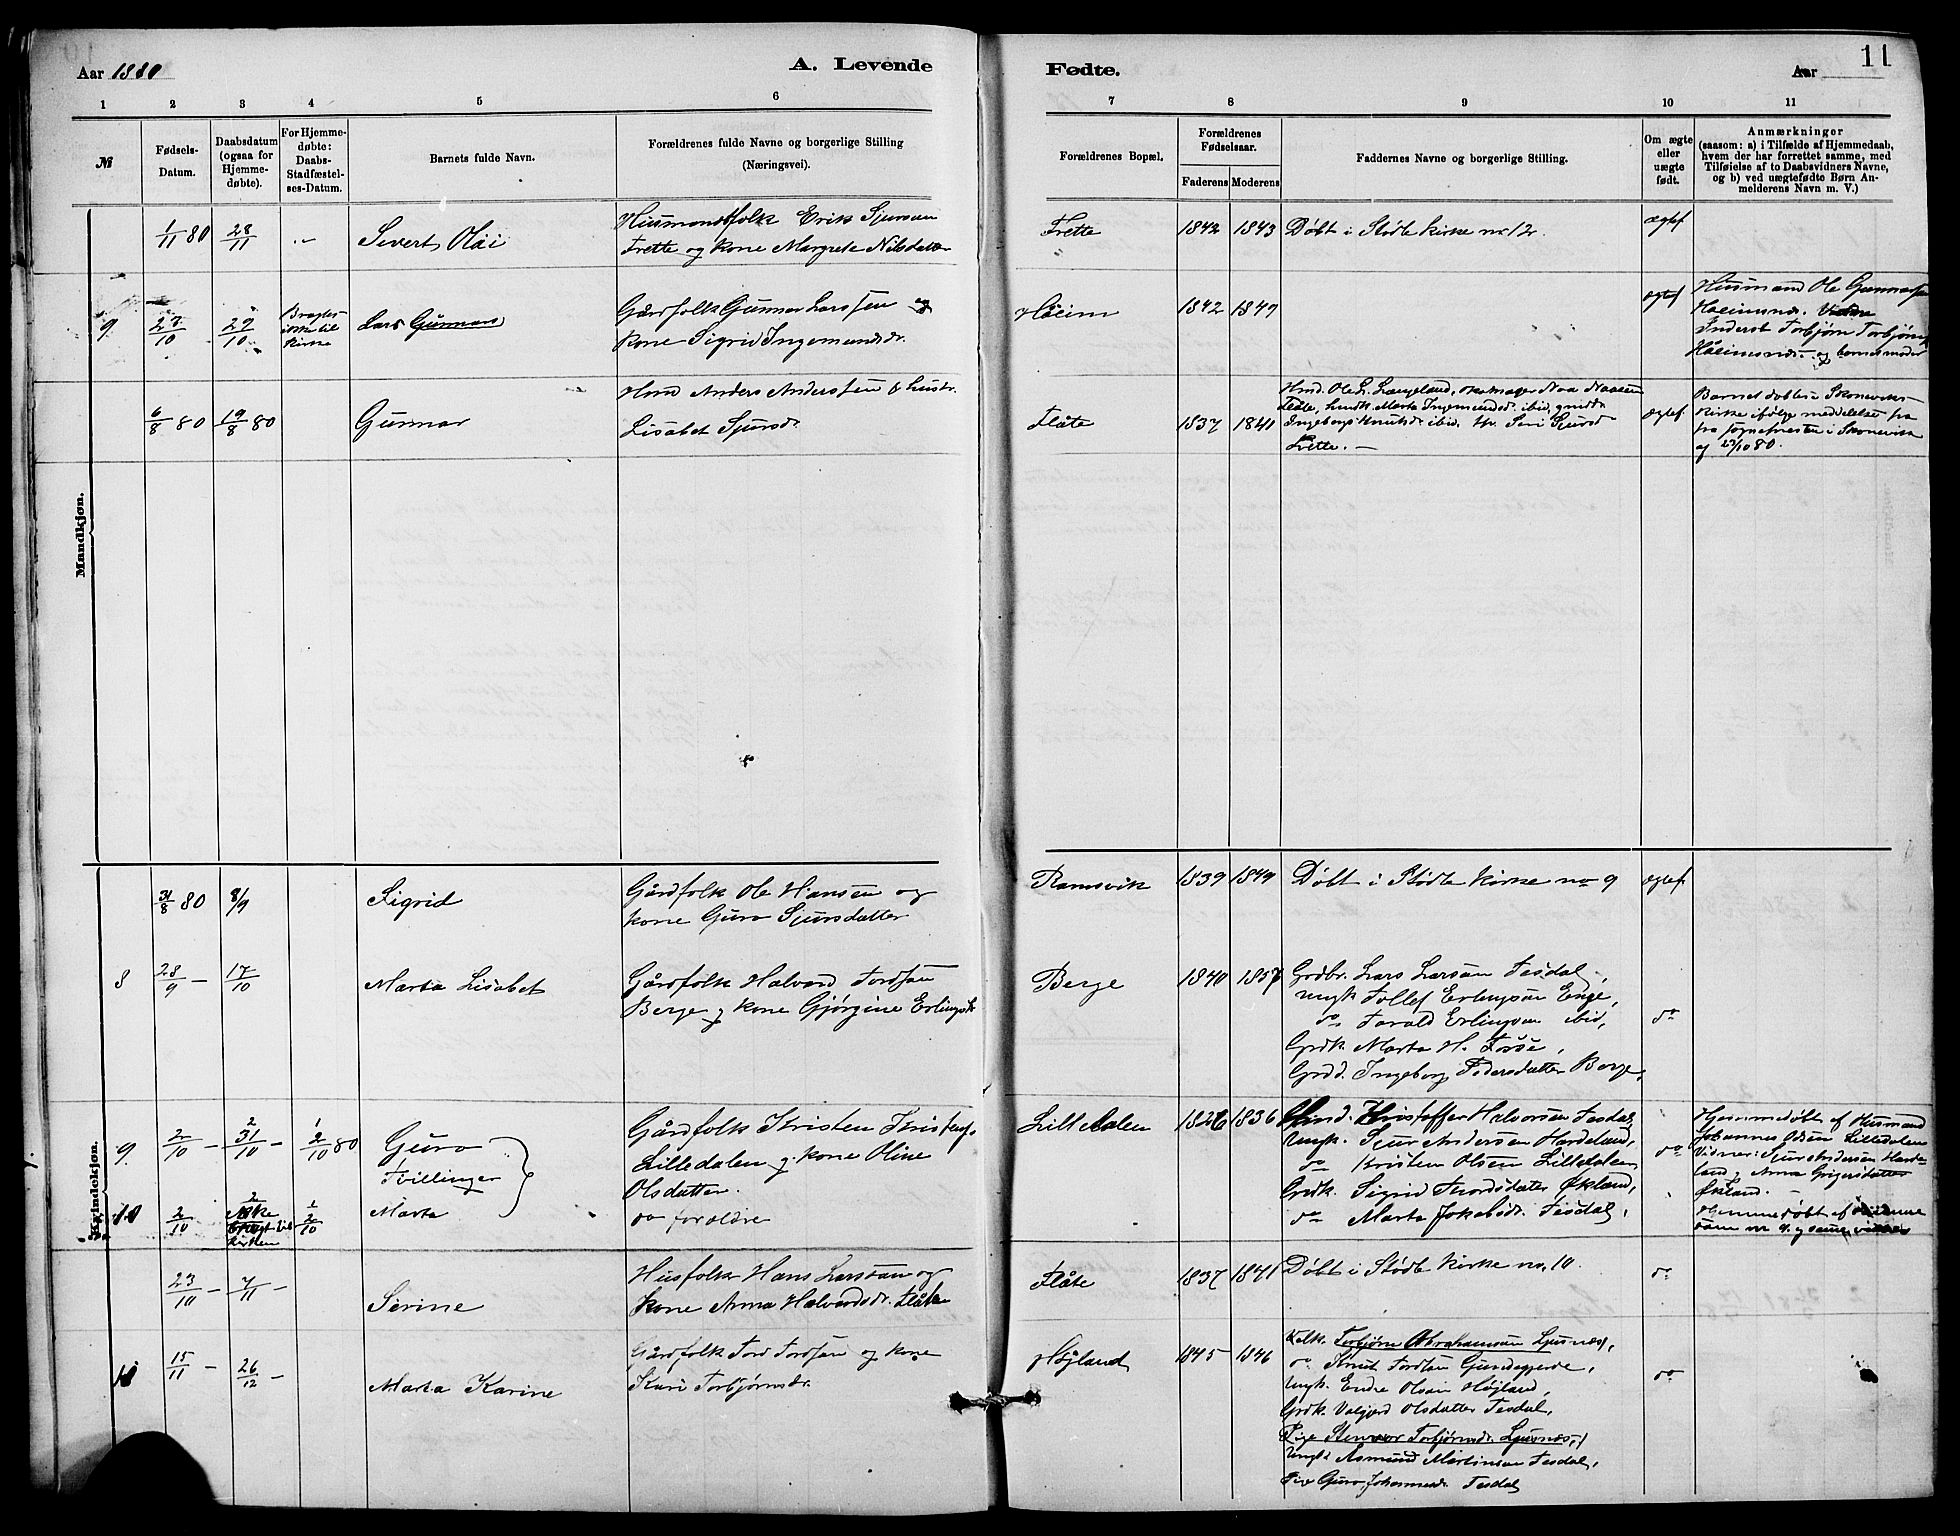 Aar 1880 A. Levende Fødte. Aar 11
1 2 3 4 5 6 7 8 9 10 11
№
Fødsels-
Datum.
Daabsdatum
(ogsaa for
Hjemme-
døbte).
For Hjemme-
døbte:
Daabs-
Stadfæstel-
ses-Datum.
Barnets fulde Navn.
Forældrenes fulde Navne og borgerlige Stilling
(Næringsvei).
Forældrenes Bopæl.
Forældrenes
Fødselsaar.
Faderens Moderens
Faddernes Navne og borgerlige Stilling.
Om ægte
eller
uægte
født.
Anmærkninger
(saasom: a) i Tilfælde af Hjemmedaab,
hvem der har forrettet samme, med
Tilføielse af to Daabsvidners Navne,
og b) ved uægtefødte Børn An-
melderens Navn m. V.)
Mandkjøn.
1/11 80 28/11 „ Sivert Olai
Husmandsfolk Erik Sjursen
Frette og kone Margrete Nilsdatter
Frette 1842 1843 Døbt i Stødle kirke nr 12. ægtef
9 27/10 29/10
Bragtes
ikke til
kirke
Lars Gunnars
Gårdfolk Gunnar Larssen og
kone Sigrid Ingemundsdr.
Håeim 1842 1847 ægtef
Husmand Ole Gunnarsen
Håeimsnds.
Inderst Torbjørn Torbjørns
Håeimsnds. og barnesmoder
6/8 80 19/8 80 Gunnar
Hmd Anders Anderssen & hustr.
Lisabet Sjursdr.
Flåte 1837 1840
Hmd. Ole L. Længeland,
Fedle, hmdk. Marta Ingemundsdr. ibid,
Ingeborg Knutsdr ibid. Siri Sjursd
Frette. —
ægtef
Barnet døbtes i Skonevik
kirke ifølge meddelelse fra
fra sognepresten i Skonevik
og 23/10 80.
Kvindekjøn.
31/8 80 8/9 Sigrid
Gårdfolk Ole Hansen og
kone Guro Sjursdatter
Ramsvik 1839 1849 Døbt i Stødle kirke no 9 ægtef
8 28/9 — 17/10 Marta Lisabet
Gårdfolk Halvard Tordsen
Berge og kone Gjørgine Erlingsdr
Berge 1840 1857
Grdbr. Lars Larsen Tesdal,
Ungk Tollef Erlingsen Enge,
do Torald Erlingsen ibid,
Grdk. Marta H. Fosse,
Grdd. Ingeborg Pedersdatter Berge,
do
9 2/10 — 31/10 — 2/10 80 Guro
Tvillinger
Gårdfolk Kristen Kristens.
Lilledalen og kone Oline
Olsdatter.
Lilledalen 1826 1836
Hmd. Kristoffer Halvorsen Tesdal,
Ungk. Sjur Andersen Hardeland,
do Kristen Olsen Lilledalen
Grdk. Sigrid Tordsdatter Økland,
do Marta Jokabsdr. Tesdal,
do
Hjemmedøbt af Husmand
Johannes Olsen Lilledalen
Vidner: Sjur Andersen Harde-
land, Anna Grigersdatter
Økland.
10 2/10
Ikke
bragt til
kirken
2/10 Marta
do foreldre
Hjemmedøbt af
som nr 9. og samme vidner
23/10 — 7/11 — Serine
Husfolk Hans Larssen og
kone Anna Halvardsdr. Flåte
Flåte 1837 1841 Døbt i Stødle kirke no. 10. do
11 15/11 — 26/12 — Marta Karine
Gårdfolk Tord Tordsen og kone
Kari Torbjørnsdr.
Høyland 1845 1846
Kalk. Torbjørn Abrahamsen Ljusnæs,
do Knut Tordsen Gundegjerde,
Ungk. Endre Olsen Høyland,
Grdk. Valgjerd Olsdatter Tesdal,
Pige Stenvor Torbjørnsdr. Ljusnæs,
Ungk. Asmund Martinsen Tesdal,
Pige Guro Johannesdr. Tesdal
do